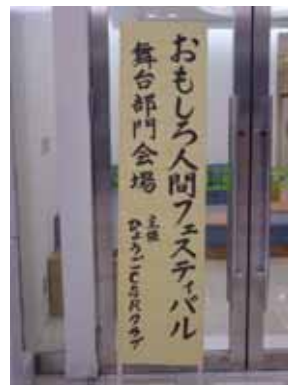 おもしろ人間フェスティバル
舞台部門会場
主催
ひょうごCSRクラブ